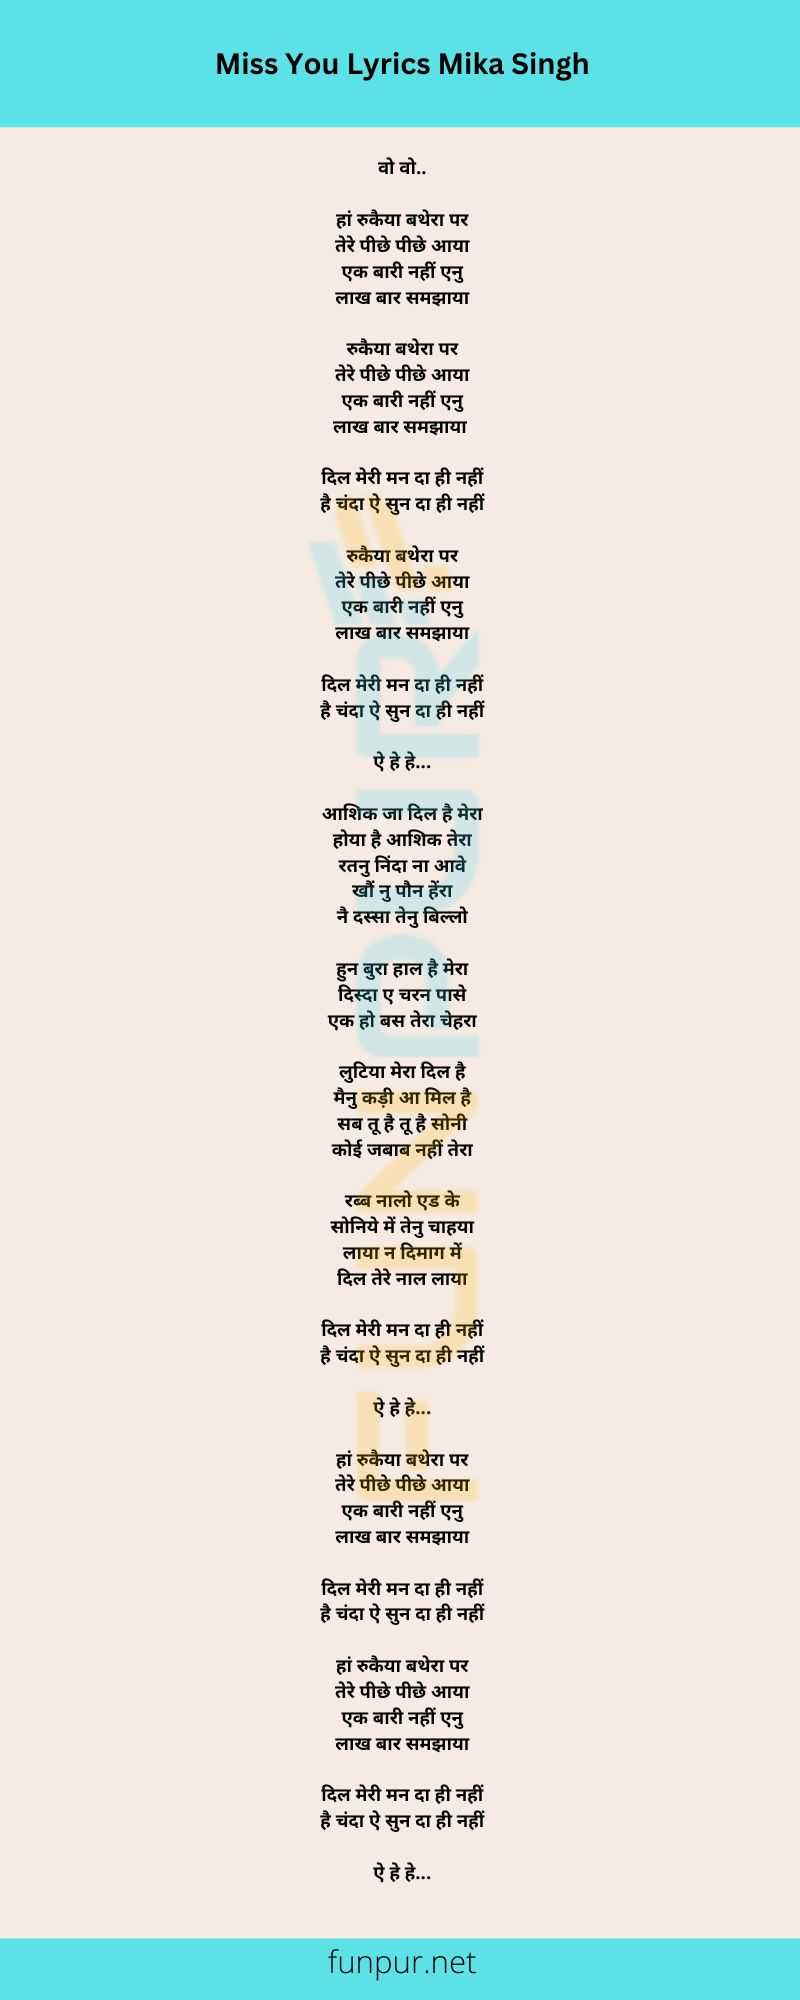 Miss You Lyrics Mika Singh
वो वो..
हां रुकैया बथेरा पर
तेरे पीछे पीछे आया
एक बारी नहीं एनु
लाख बार समझाया
रुकैया बथेरा पर
तेरे पीछे पीछे आया
एक बारी नहीं एनु
लाख बार समझाया
दिल मेरी मन दा ही नहीं
है चंदा ऐ सुन दा ही नहीं
रुकैया बथेरा पर
तेरे पीछे पीछे आया
एक बारी नहीं एनु
लाख बार समझाया
दिल मेरी मन दा ही नहीं
है चंदा ऐ सुन दा ही नहीं
ऐ हे हे...
आशिक जा दिल है मेरा
होया है आशिक तेरा
रतनु निंदा ना आवे
खौं नु पौन हेंरा
नै दस्सा तेनु बिल्लो
हुन बुरा हाल है मेरा
दिस्दा ए चरन पासे
एक हो बस तेरा चेहरा
लुटिया मेरा दिल है
मैनु कड़ी आ मिल है
सब तू है तू है सोनी
कोई जबाब नहीं तेरा
रब्ब नालो एड के
सोनिये में तेनु चाहया
लाया न दिमाग में
दिल तेरे नाल लाया
दिल मेरी मन दा ही नहीं
है चंदा ऐ सुन दा ही नहीं
ऐ हे हे...
हां रुकैया बथेरा पर
तेरे पीछे पीछे आया
एक बारी नहीं एनु
लाख बार समझाया
दिल मेरी मन दा ही नहीं
है चंदा ऐ सुन दा ही नहीं
हां रुकैया बथेरा पर
तेरे पीछे पीछे आया
एक बारी नहीं एनु
लाख बार समझाया
दिल मेरी मन दा ही नहीं
है चंदा ऐ सुन दा ही नहीं
ऐ हे हे...
FUNPUR
funpur.net